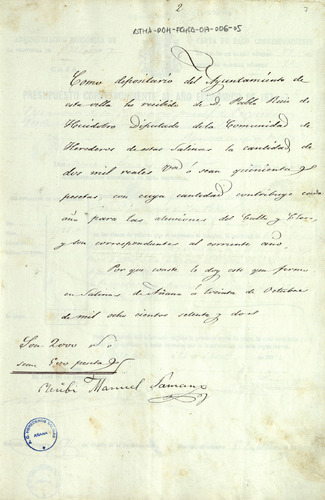 2
7
ATHA-DAH-FGHCO-014-006-05
Como depositario del Ayuntamiento de
esta villa he recibido de D. Pablo Ruiz de
Huidobro Diputado de la Comunidad de
Herederos de estas Salinas la cantidad de
dos mil reales vⁿ ó sean quinientas
pesetas, con cuya cantidad contribuye cada
año para las atenciones del Culto y Clero
y son correspondientes al corriente año.
Por que conste le doy este que firmo
en Salinas de Añana á treinta de Octubre
de mil ocho cientos setenta y dos
Son 2000 rˢ ó
sean 500 pesetas
Recibi Manuel Samano